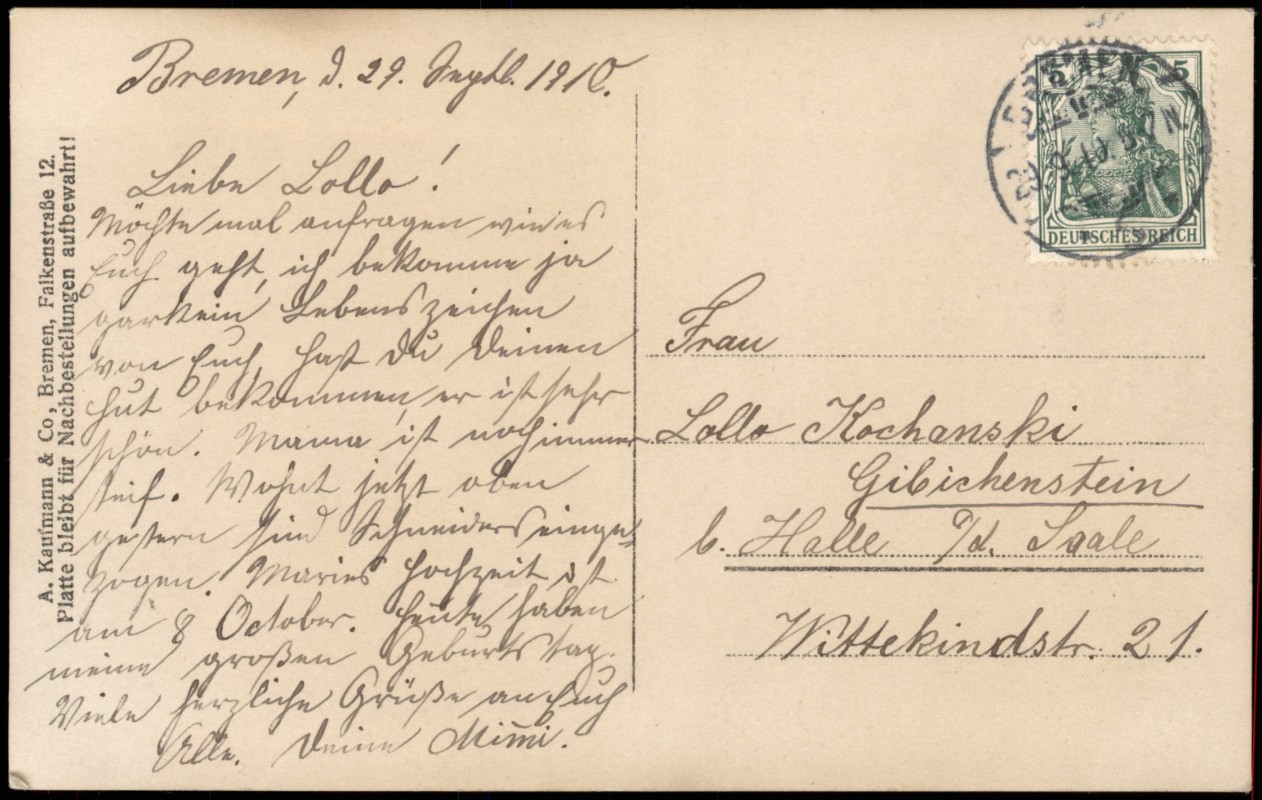 Bremen, d. 29. Septb. 1910.
Liebe Lollo!
Möchte mal anfragen wie es
Euch geht, ich bekomme ja
garkein Lebenszeichen
von Euch, hast Du Deinen
Hut bekommen, er ist sehr
schön. Mama ist noch immer
steif. Wohnt jetzt oben
gestern sind Schneiders einge-
zogen. Maries Hochzeit ist
am 8 October. Heute haben
meine großen Geburtstag.
Viele herzliche Grüße an Euch
Alle. Deine Mimi.
A. Kaufmann & Co, Bremen, Falkenstraße 12.
Platte bleibt für Nachbestellungen aufbewahrt!
5 5
DEUTSCHES REICH
BREMEN
29.9.10. 6-7 N.
Frau
Lollo Kochanski
Gibichenstein
b. Halle a/d. Saale
Wittekindstr. 21.